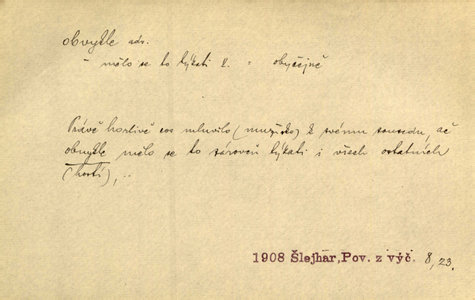 obvykle adv.
- mělo se to týkati 2. = obyčejně
Právě horlivě cos mluvilo (muzisko) k svému sousedu, ač
obvykle mělo se to zároveň týkati i všech ostatních
(hostí), ..
1908 Šlejhar, Pov. z výč. 8, 23.